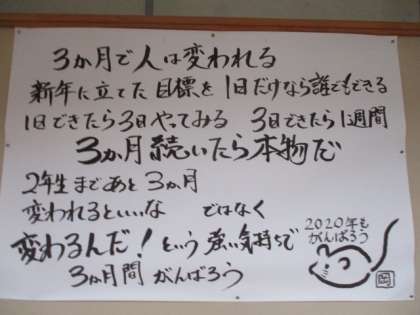 3か月で人は変われる
新年に立てた目標を1日だけなら誰でもできる
1日できたら3日やってみる 3日できたら1週間
3か月続いたら本物だ
2年生まであと3か月
変われるといいな ではなく
変わるんだ!という強い気持ちで
3か月間 がんばろう
2020年も
がんばろう
岡